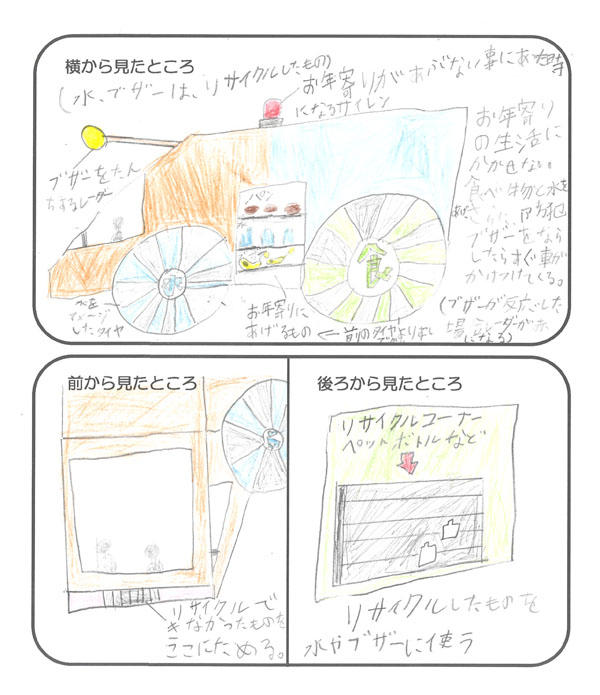 横から見たところ
(水、ブザーは、リサイクルしたもの)
お年寄りがあぶない事にあった時
になるサイレン
ブザーをたん
ちするレーダー
お年寄り
の生活に
かかせない。
食べ物と水を
防犯
ブザーをなら
したらすぐ車が
かけつけてくる。
(ブザーが反応した
場合レーダーが赤
になる)
パン
水
食
水を
イメージ
したタイヤ
お年寄りに
あげるもの
前のタイヤより
前から見たところ
リサイクルで
きなかったものを
ここにためる。
後ろから見たところ
リサイクルコーナー
ペットボトルなど
リサイクルしたものを
水やブザーに使う